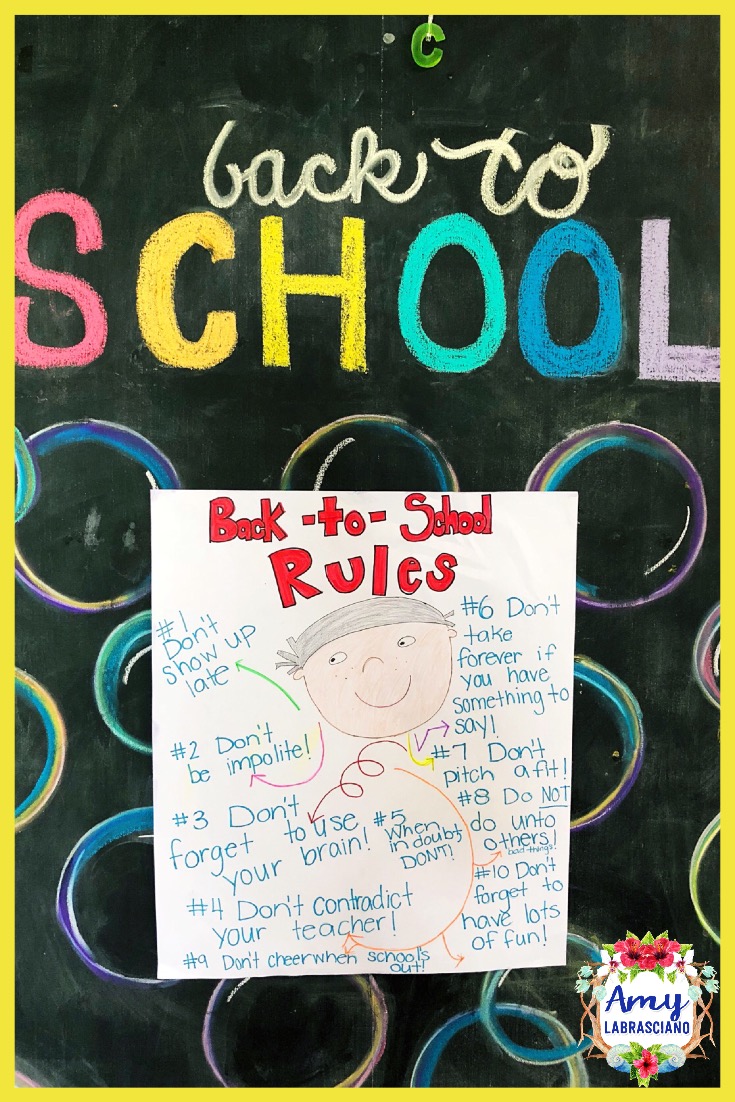 C
back to
SCHOOL
Back-to-School
Rules
#1
Don't
show up
late
#2 Don't
be impolite!
#3 Don't
forget to use
your brain!
#4 Don't contradict
your teacher!
#5
When
in doubt,
DON'T!
#6 Don't
take
forever if
you have
something to
say!
#7 Don't
pitch a fit!
#8 Do NOT
do unto
others!
bad things
#9 Don't cheer when school's
out!
#10 Don't
forget to
have lots
of fun!
Amy
LABRASCIANO